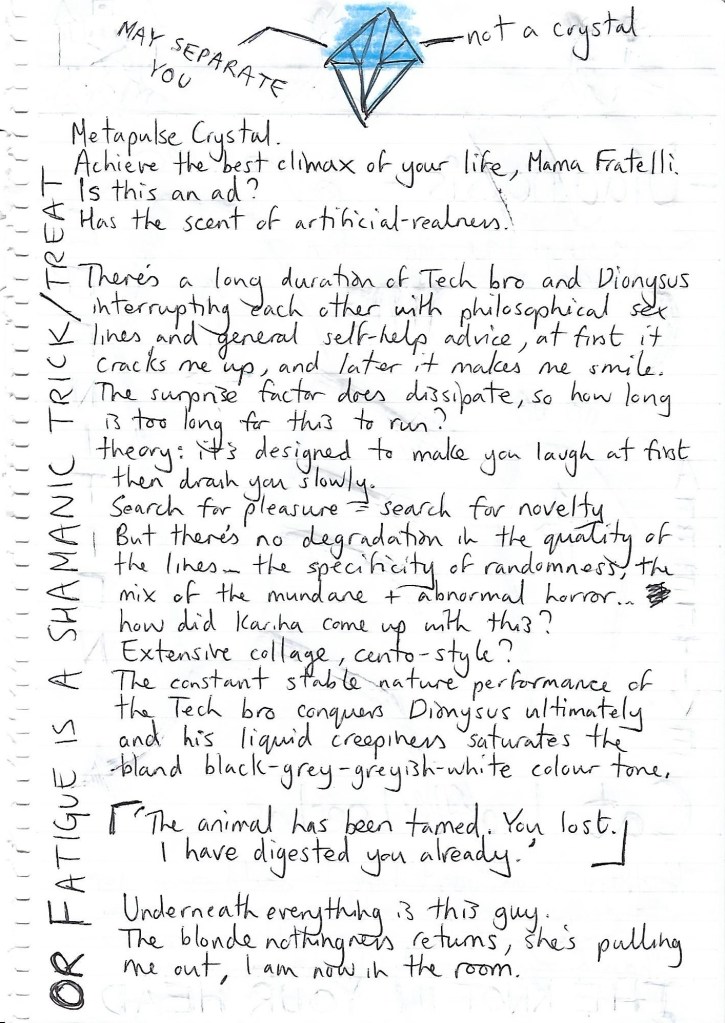 MAY SEPARATE
YOU
not a crystal
Metapulse Crystal.
Achieve the best climax of your life, Mama Fratelli.
Is this an ad?
Has the scent of artificial-realness.
There's a long duration of Tech bro and Dionysus
interrupting each other with philosophical sex
lines, and general self-help advice, at first it
cracks me up, and later it makes me smile.
The surprise factor does dissipate, so how long
is too long for this to run?
theory: it's designed to make you laugh at first
then drain you slowly.
Search for pleasure = search for novelty
But there's no degradation in the quality of
the lines – the specificity of randomness, the
mix of the mundane + abnormal horror...
how did Kariha come up with this?
Extensive collage, cento-style?
The constant stable nature performance of
the Tech bro conquers Dionysus ultimately
and his liquid creepiness saturates the
bland black-grey-greyish-white colour tone.
'The animal has been tamed. You lost.
I have digested you already.'
Underneath everything is this guy.
The blonde nothingness returns, she's pulling
me out, I am now in the room.
OR FATIGUE IS A SHAMANIC TRICK/TREAT